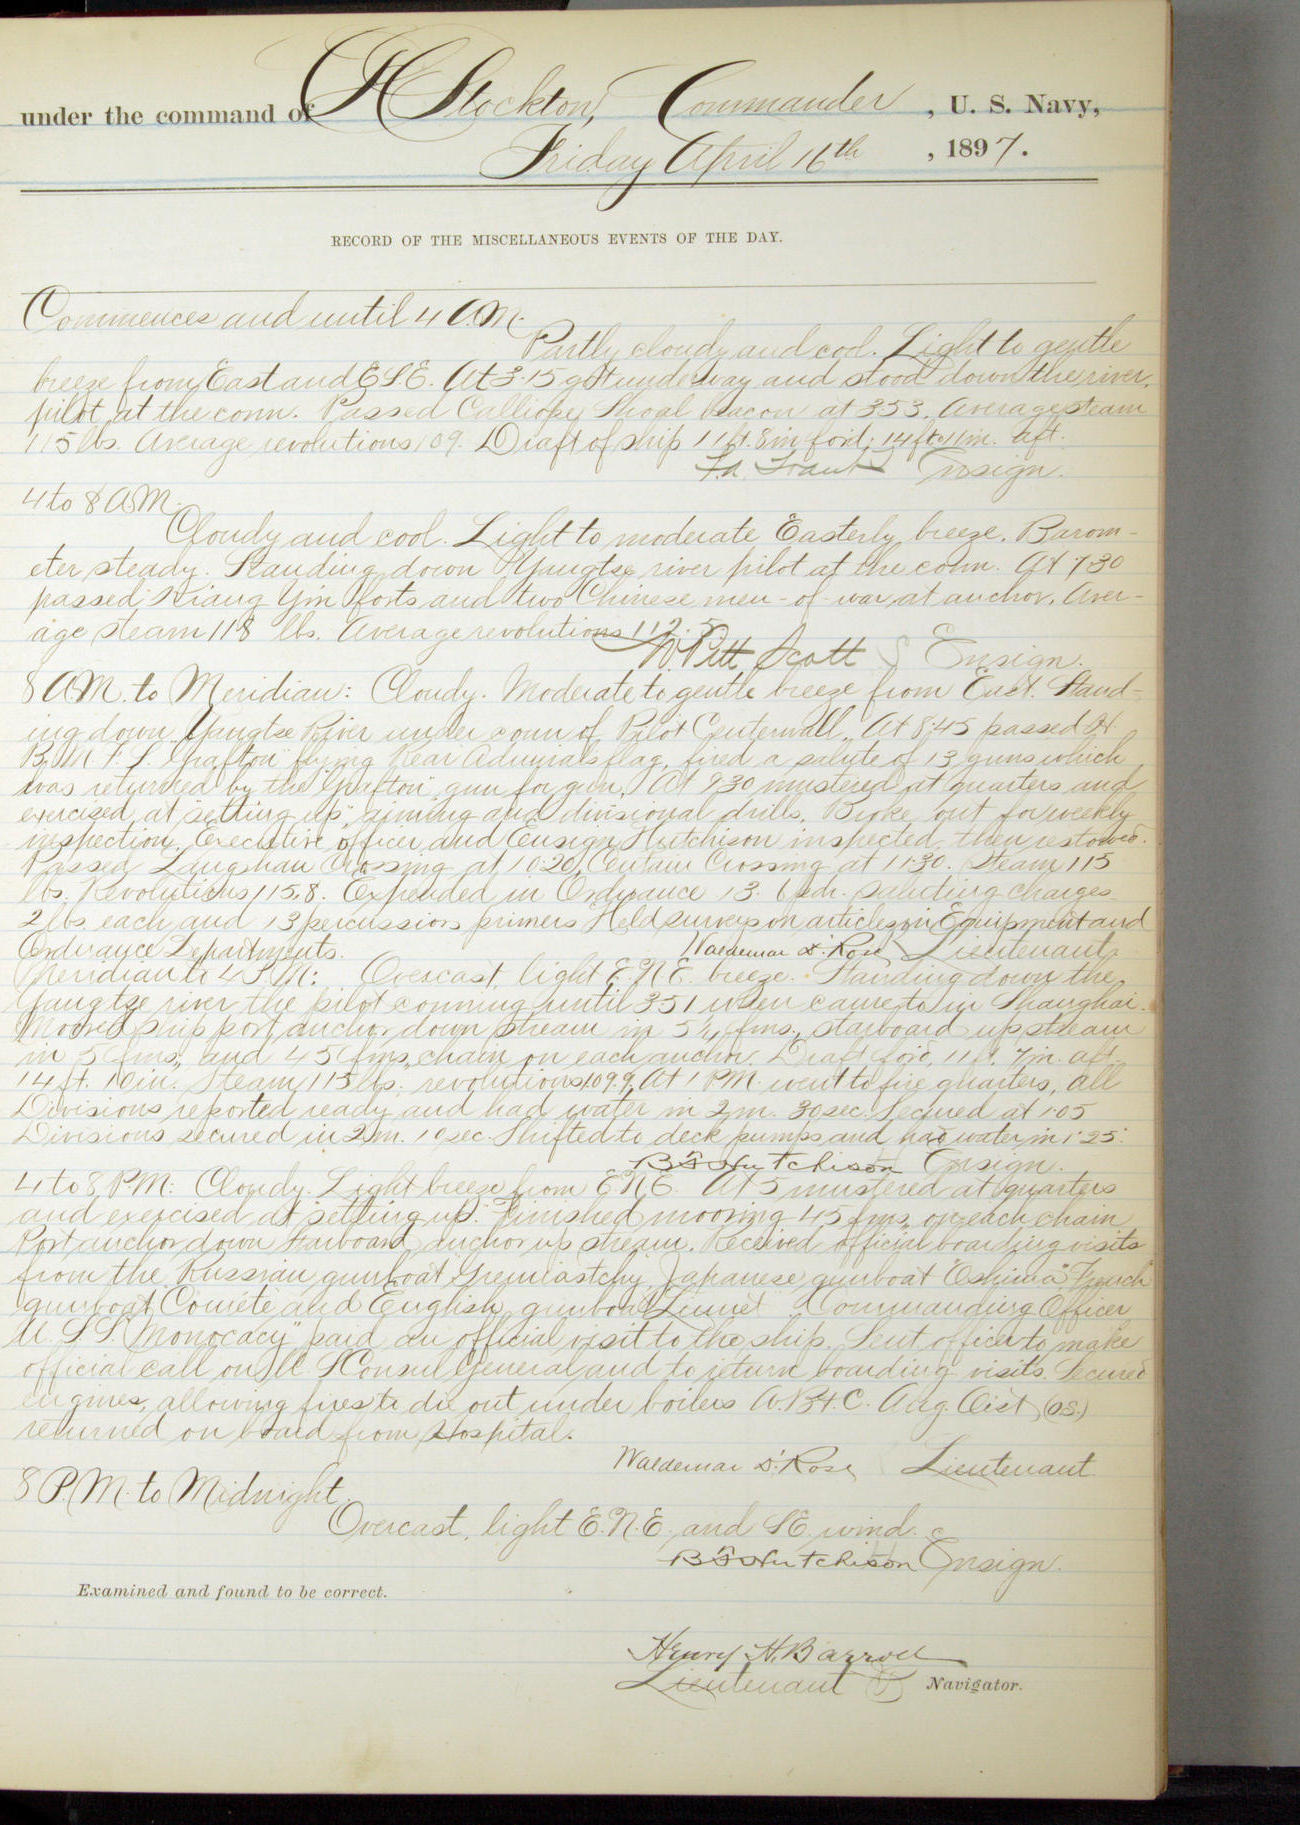 under the command of H Stockton, Commander, U. S. Navy,
Friday April 16th, 1897.
RECORD OF THE MISCELLANEOUS EVENTS OF THE DAY.
Commences and until 4 A.M.
Partly cloudy and cool. Light to gentle
breeze from East and E.S.E. At 3.15 got underway and stood down the river,
pilot at the conn. Passed Calliope Shoal beacon at 3.53. Average steam
115 lbs. Average revolutions 109. Draft of ship 11 ft. 8 in for'd; 14 ft. 11 in. aft.
Ensign.
4 to 8 A.M.
Cloudy and cool. Light to moderate Easterly breeze. Barom-
eter steady. Standing down Yangtse river pilot at the conn. At 7.30
passed Kiang Yin forts and two Chinese men-of-war at anchor. Aver-
age steam 118 lbs. Average revolutions 112.5
W. Pitt Scott Ensign.
8 A.M. to Meridian: Cloudy. Moderate to gentle breeze from East. Stand-
ing down Yangtse River under conn of Pilot Centerwall. At 8.45 passed H.
B. M. F. S. "Grafton" flying Rear Admirals flag, fired a salute of 13 guns which
was returned by the "Grafton" gun for gun. At 9.30 mustered at quarters and
exercised at "setting up", aiming and divisional drills. Broke out for weekly
inspection. Executive officer and Ensign Hutchison inspected, then restowed.
Passed Langshan Crossing at 10.20, Crossing at 11.30. Steam 115
lbs. Revolutions 115.8. Expended in Ordnance 13. 6 pdr. saluting charges
2 lbs. each and 13 percussion primers Held surveys on articles in Equipment and
Ordnance Departments. Waldemar D. Rose Lieutenant
Meridian to 4 P.M: Overcast, light E.N.E. breeze. Standing down the
Yangtze river the pilot conning until 3.51 when came to in Shanghai.
Moored ship port anchor down stream in 5 1/4 fms., starboard up stream
in 5 fms., and 45 fms. chain on each anchor. Draft for'd, 11 ft. 7 in. aft
14 ft. 10 in. Steam 115 lbs. revolutions 109.9. At 1 P.M. went to fire quarters, all
Divisions reported ready and had water in 2 m. 30 sec. Secured at 1.05
Divisions secured in 2 m. 10 sec. Shifted to deck pumps and had water in 1' 25".
B F Hutchison Ensign.
4 to 8 P.M: Cloudy. Light breeze from E.N.E. At 5 mustered at quarters
and exercised at "setting up." Finished mooring 45 fms. on each chain
Port anchor down starboard anchor up stream. Received official boarding visits
from the Russian gunboat Gremiastchy, Japanese gunboat "Oshima" French
gunboat Comète and English gunboat "Linnet". Commanding Officer
U. S. S. "Monocacy" paid an official visit to the ship. Sent officer to make
official call on U. S Consul General and to return boarding visits. Secured
engines, allowing fires to die out under boilers A. B & C. Aug. (O.S.)
returned on board from Hospital.
Waldemar D. Rose Lieutenant
8 P.M. to Midnight.
Overcast, light E.N.E. and S.E. wind.
B F Hutchison Ensign.
Examined and found to be correct.
Henry H. Barroll
Lieutenant Navigator.